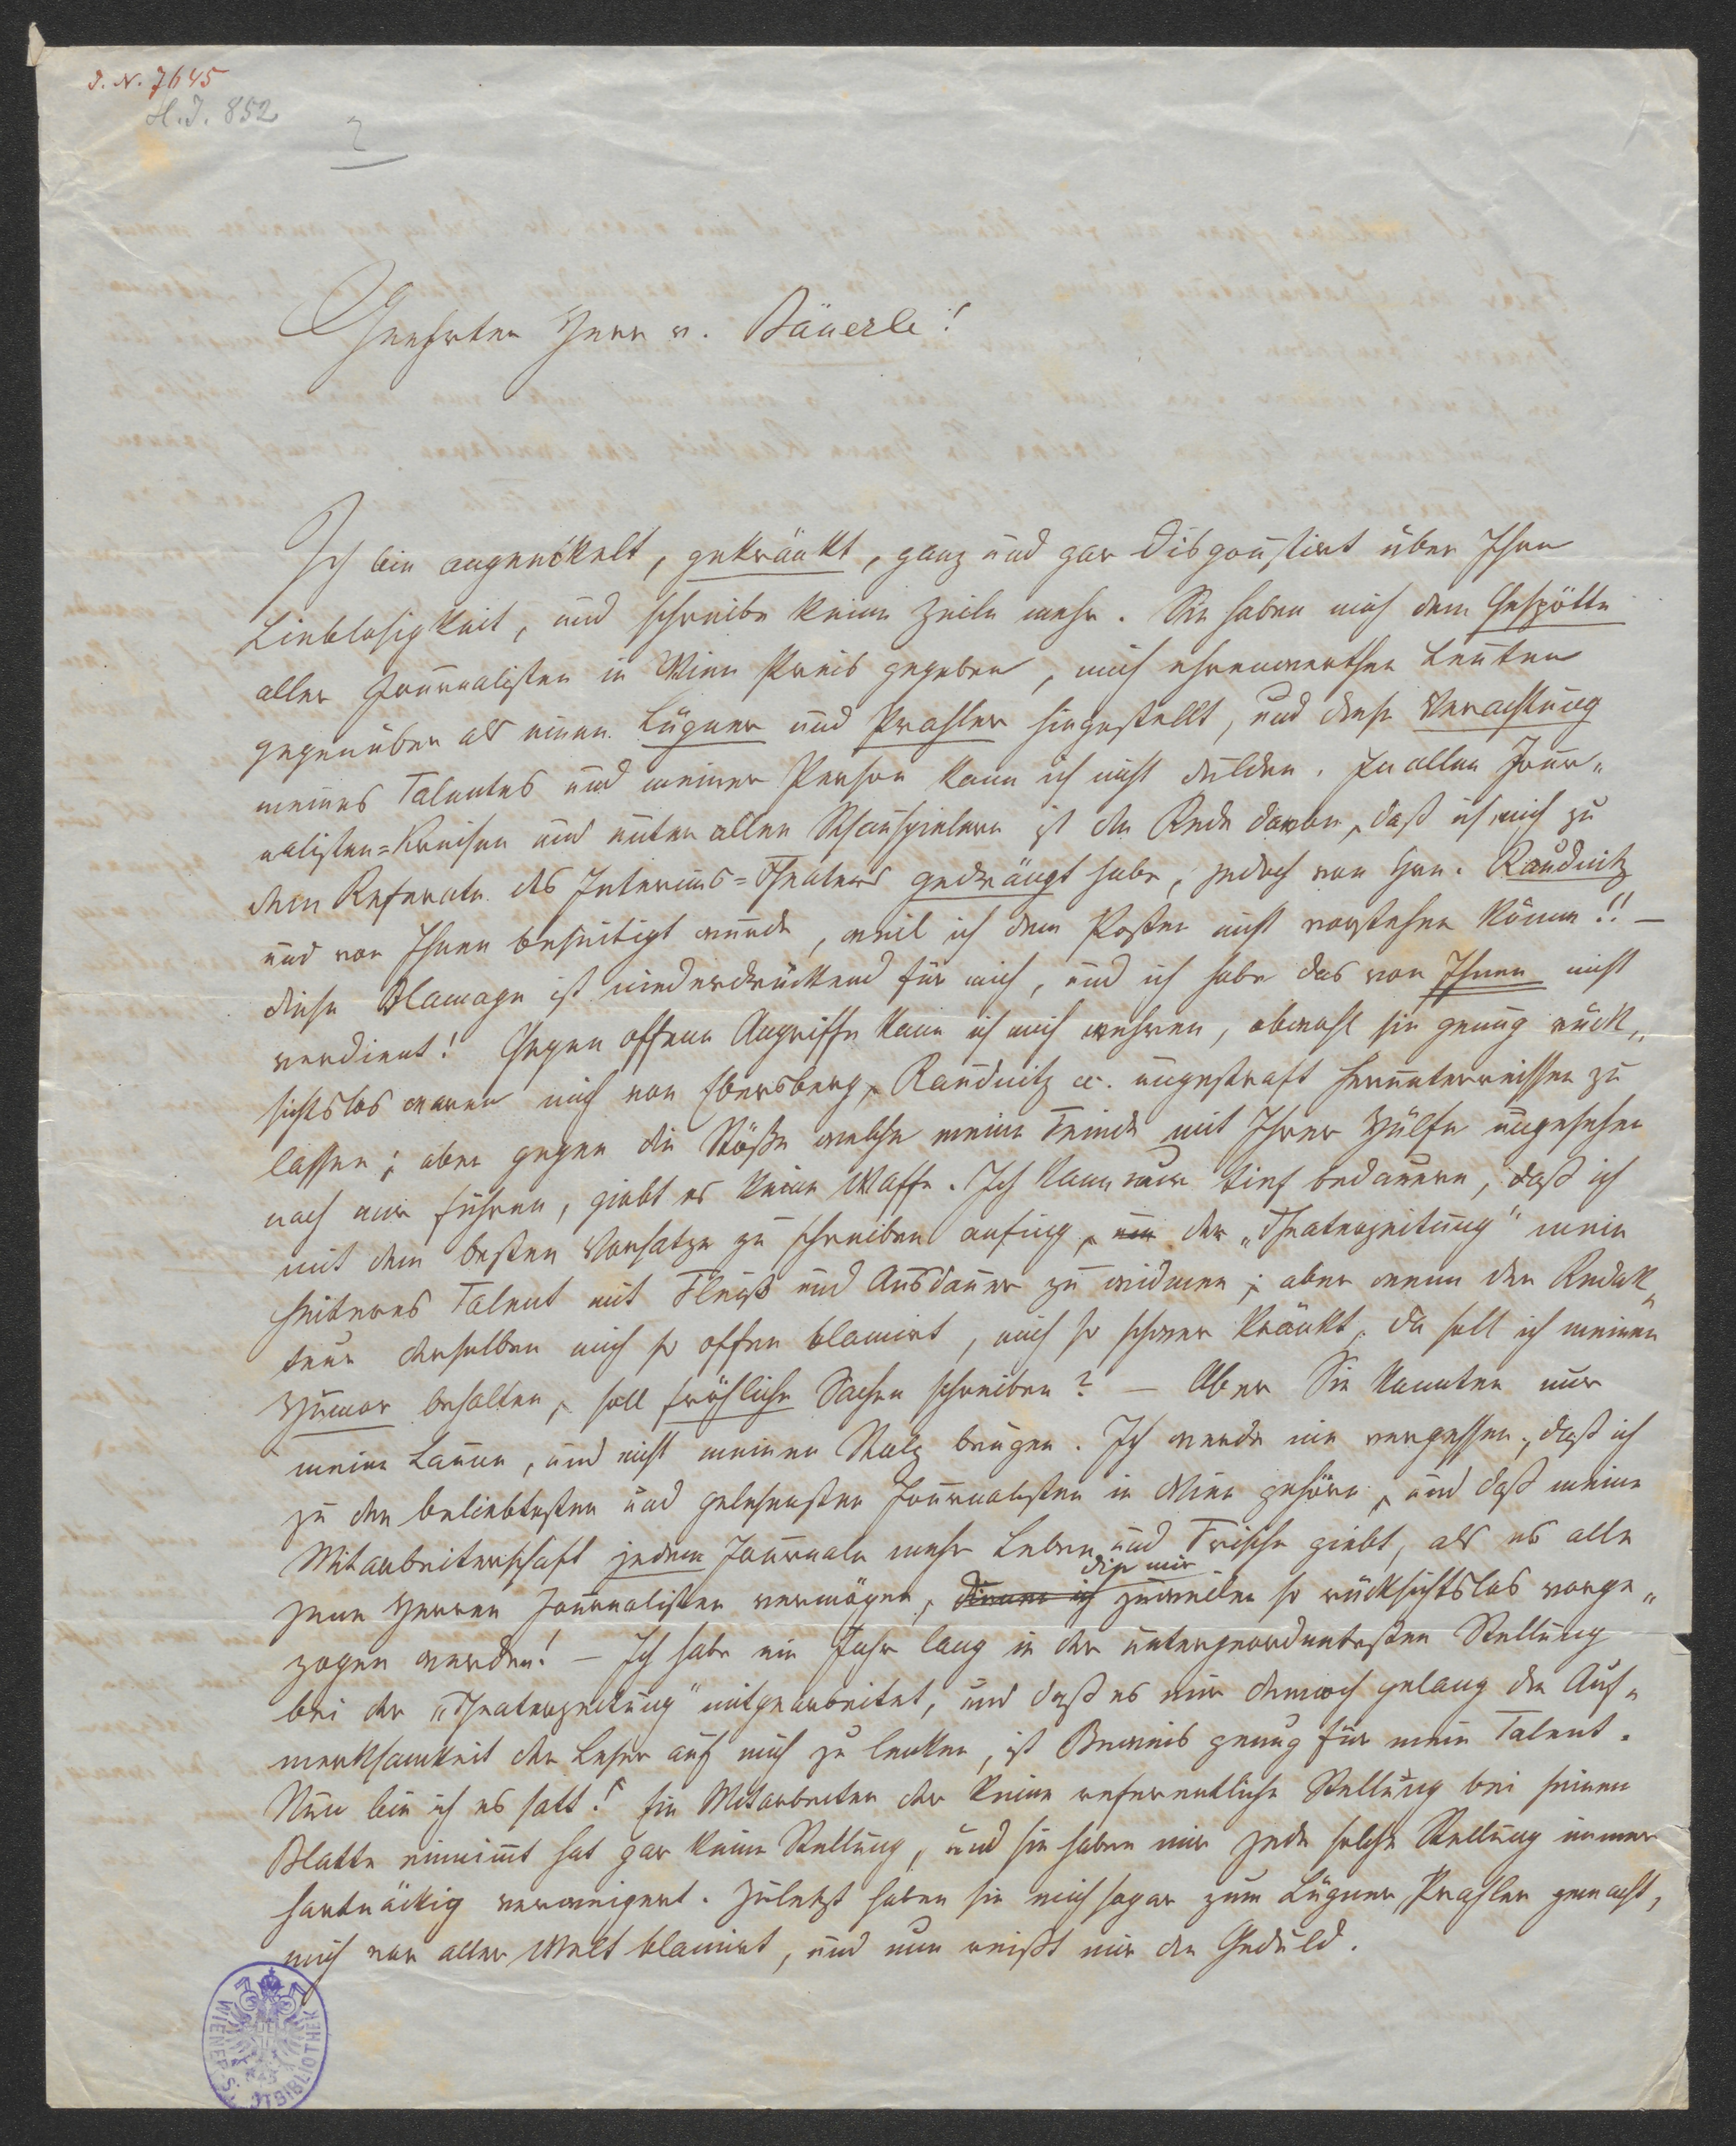 J. N. 7645
H.J. 852
2
Geehrter Herr v. Bäuerle!
Ich bin angeeckelt, gekränkt, ganz und gar disgoustirt über Ihre
Lieblosigkeit, und schreibe keine Zeile mehr. Sie haben mich dem Gespötte
aller Journalisten in Wien Preis gegeben, mich ehrenwerthen Leuten
gegenüber als einen Lügner und Prahler hingestellt, und diese Verachtung
meines Talentes und meiner Person kann ich nicht dulden. In allen Jour„
nalisten=Kreisen und unter allen Schauspielern ist die Rede davon, daß ich mich zu
dem Referate des Interims=Theaters gedrängt habe, jedoch von Hrn. Raudnitz
und von Ihnen beseitigt wurde, weil ich dem Posten nicht vorstehen könne!! —
diese Blamage ist niederdrückend für mich, und ich habe das von Ihnen nicht
verdient! Gegen offene Angriffe kann ich mich wehren, obwohl sie genug rück„
sichtslos waren mich von Ebersberg, Raudnitz etc. ungestraft herunterreissen zu
lassen; aber gegen die Stöße welche meine Feinde mit Ihrer Hülfe ungesehen
nach mir führen, giebt es keine Waffe. Ich kann nur tief bedauern, daß ich
mit dem besten Vorsatze zu schreiben anfing, um der „Theaterzeitung" mein
heiteres Talent mit Fleiß und Ausdauer zu widmen; aber wenn der Redak„
teur derselben mich so offen blamirt, mich so schwer kränkt, da soll ich meinen
Humor behalten, soll fröhliche Sachen schreiben? — Aber Sie konnten nur
meine Laune, und nicht meinen Stolz beugen. Ich werde nie vergessen, daß ich
zu den beliebtesten und gelesensten Journalisten in Wien gehöre, und daß meine
Mitarbeiterschaft jedem Journale mehr Leben und Frische giebt, als es alle
die mir
jene Herren Journalisten vermögen, denen ich zuweilen so rücksichtslos vorge„
zogen werden! — Ich habe ein Jahr lang in der untergeordnetesten Stellung
bei der „Theaterzeitung" mitgearbeitet, und daß es mir dennoch gelang die Auf„
merksamkeit der Leser auf mich zu lenken, ist Beweis genug für mein Talent.
Nun bin ich es satt! Ein Mitarbeiter der keine referentliche Stellung bei seinem
Blatte einnimt hat gar keine Stellung, und sie haben mir jede solche Stellung immer
hartnäckig verweigert. Zuletzt haben sie mich sogar zum Lügner, Prahler gemacht,
mich vor aller Welt blamirt, und nun reißt mir die Geduld.